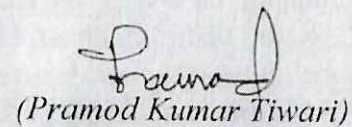 Pramod
(Pramod Kumar Tiwari)